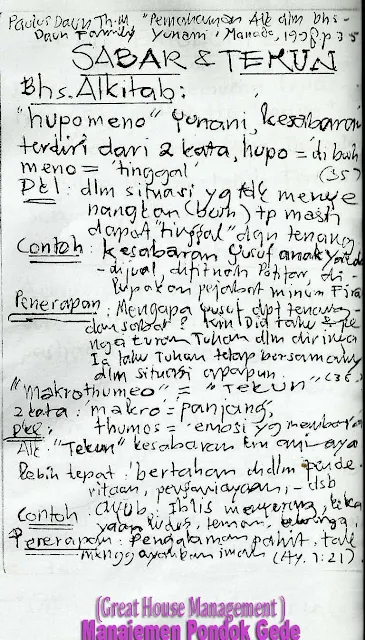 Paulus Daun Th.M "Pemahaman Alk dlm bhs-
Daun Family Yunani, Manado, 1998, p 35
SABAR & TEKUN
Bhs. Alkitab:
"hupomeno" Yunani, kesabaran
terdiri dari 2 kata, hupo = 'di bwh
meno = 'tinggal' (35)
Pkl: dlm situasi yg tdk menye
nangkan (bwh) tp masih
dapat "tinggal" dgn tenang
Contoh: kesabaran Yusuf anak
- dijual, difitnah Potifar, di-
lupakan pejabat minum Fira
Penerapan: Mengapa Yusuf dpt tenang
dan sabar? Krn Dia tahu
Tuhan dlm dirinya
Ia tahu Tuhan tetap bersamanya
dlm situasi apapun. (36)
"Makrothumeo" = "TEKUN"
2 kata: makro = panjang,
thumos = emosi yg membara
Alk: "Tekun" kesabaran krn ani-aya
lebih tepat: 'bertahan didlm pende-
ritaan, penganiayaan, - dsb
Contoh: Ayub: Iblis menyerang, keka
yaan ludes, teman, keluarga,
Penerapan: Pengalaman pahit, tak
menggoyahkan iman (Ay. 1:21)
(Great House Management )
Manajemen Pondok Gede